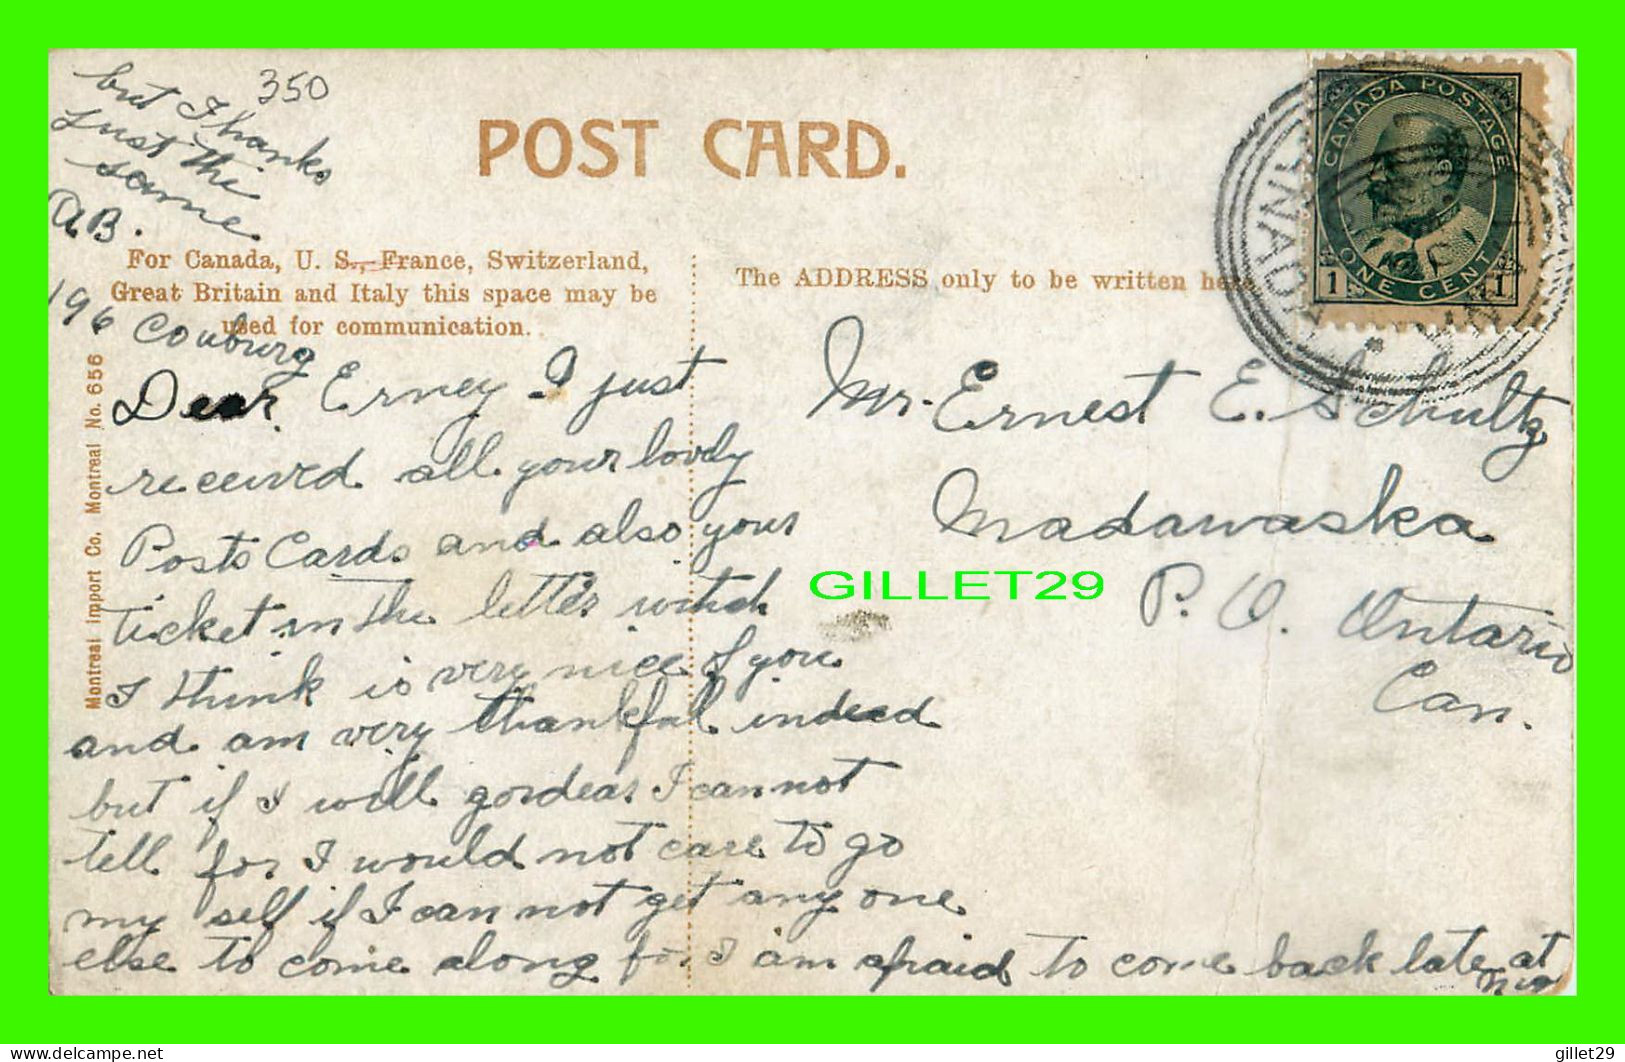 but I thanks
just the
same
AB.
350
POST CARD.
CANADA POSTAGE
1 ONE CENT 1
For Canada, U. S., France, Switzerland,
Great Britain and Italy this space may be
used for communication.
The ADDRESS only to be written here
Montreal Import Co. Montreal No. 656
196 Couburg
Dear Erney I just
received all your lovly
Posts Cards and also your
ticket in the letter witch
I think is very nice of you
and am very thankful indeed
but if I will go dear I can not
tell for I would not care to go
my self if I can not get any one
else to come along for I am afraid to come back late at
Mr. Ernest E. Schultz
Madawaska
P. O. Ontario
Can.
GILLET29
delcampe.net
gillet29